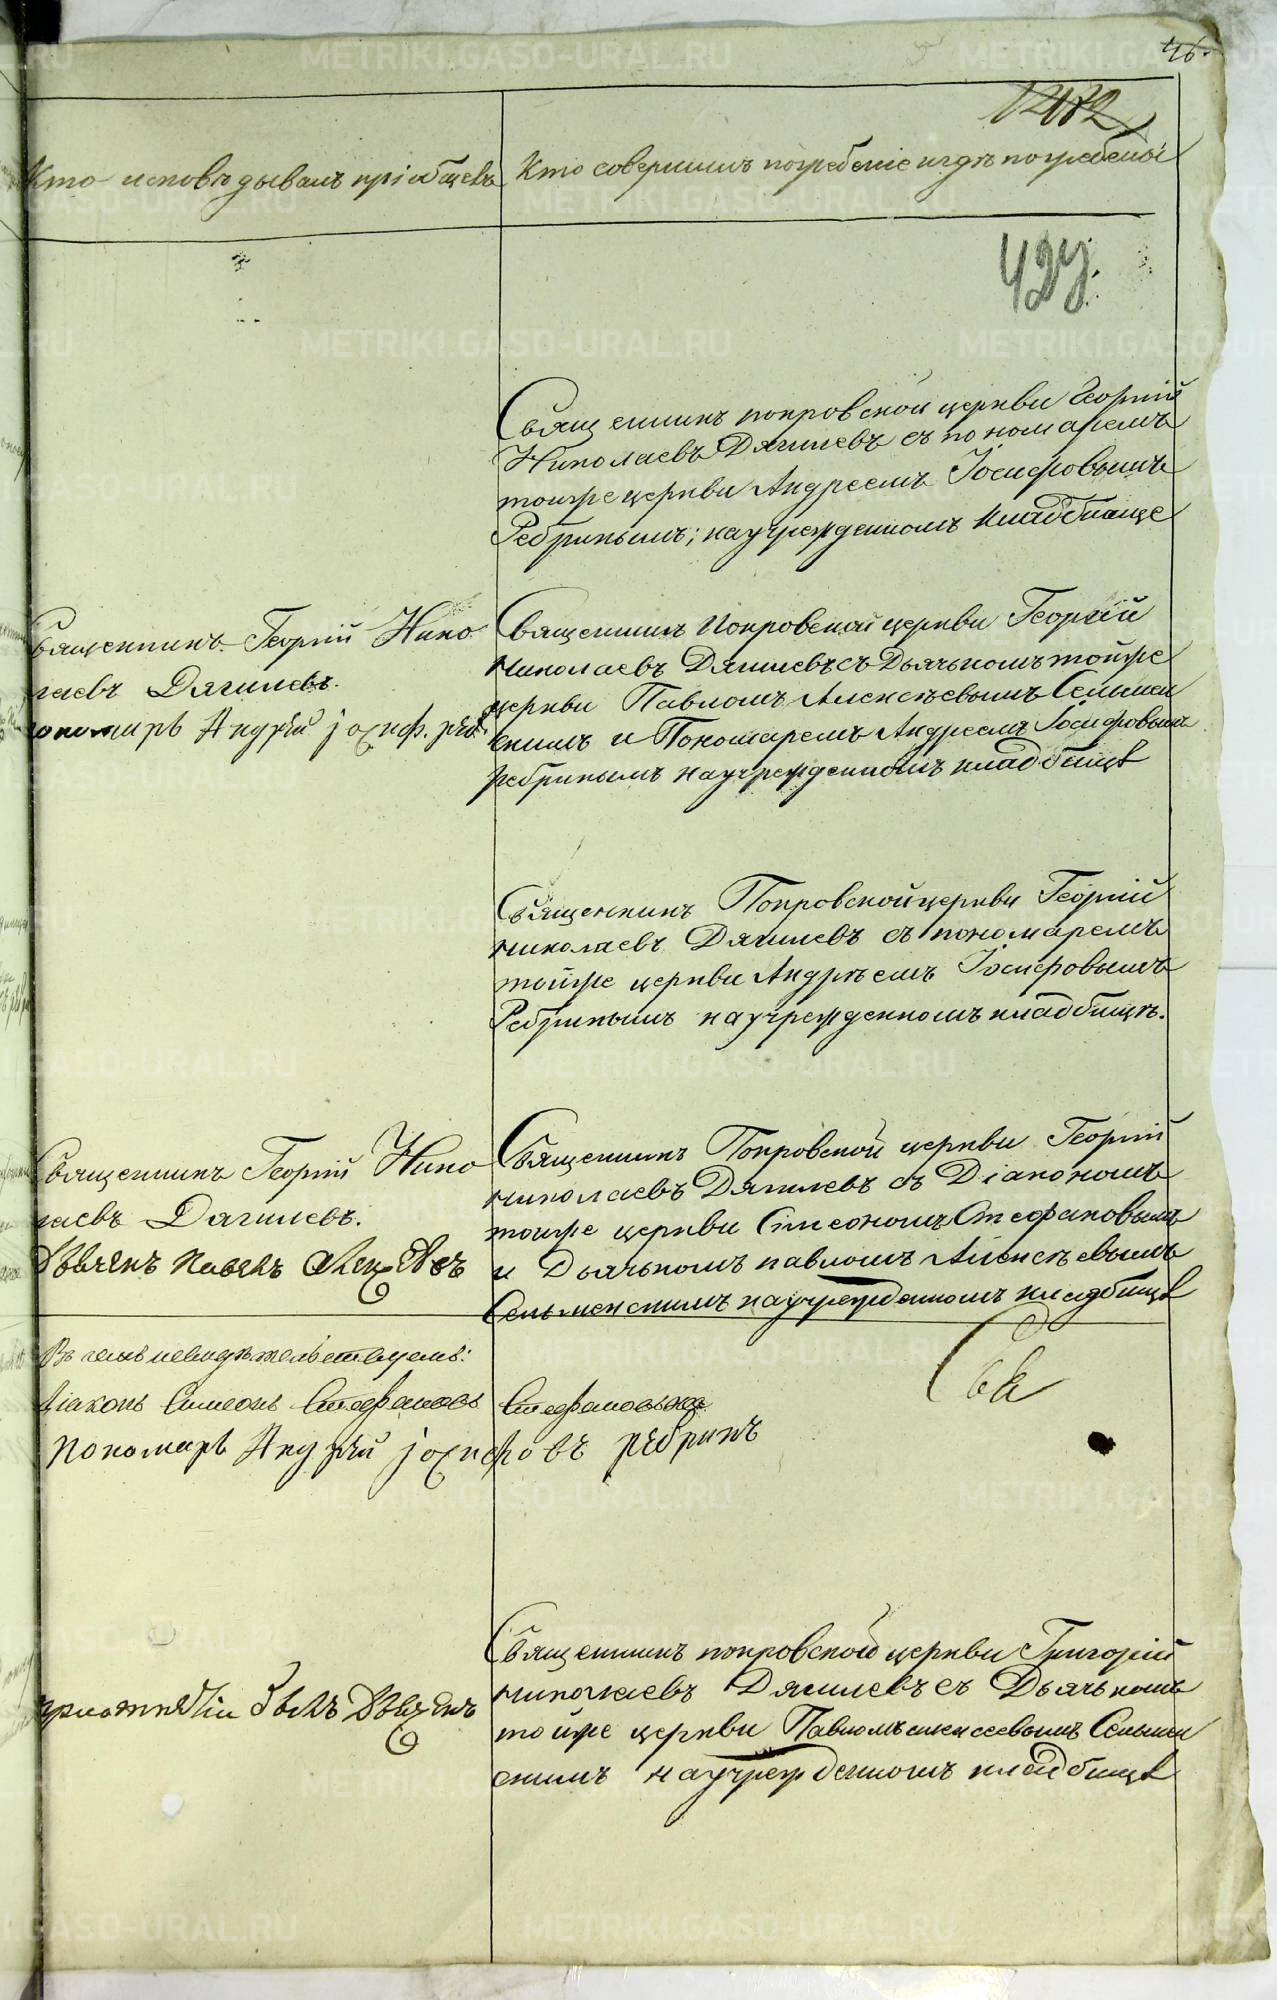 46.
1282
Кто исповѣдывалъ и пріобщалъ
Кто совершилъ погребеніе и гдѣ погребены
42у.
Священникъ покровской церкви Георгій
Николаевъ Дягилевъ съ пономаремъ
тойже церкви Андреемъ Іосифовымъ
Ребринымъ; на учрежденномъ кладбище
Священникъ Георгій Нико
лаевъ Дягилевъ.
пономарь Андрѣй іосиф. рѣб.
Священникъ Покровской церкви Георгій
Николаевъ Дягилевъ съ Дьячькомъ тойже
церкви Павломъ Алексѣевымъ Сельмен
скимъ и Пономаремъ Андреемъ Іосифовымъ
ребринымъ на учрежденномъ кладбищѣ
Священникъ Покровской церкви Георгій
Николаевъ Дягилевъ съ пономаремъ
тойже церкви Андрѣемъ Іосифовымъ
Ребринымъ на учрежденномъ кладбищѣ.
Священникъ Георгій Нико
лаевъ Дягилевъ.
Дьячекъ Павелъ Алексѣевъ
Священникъ Покровской церкви Георгій
Николаевъ Дягилевъ съ Діакономъ
тоиже церкви Симеономъ Стефановымъ
и Дьячькомъ павломъ Алексѣевымъ
Сельменскимъ на учрежденномъ кладбищѣ
Въ семъ свидѣтельствуемъ:
Діаконъ Симеонъ Стефановъ Стефановыхъ
Пономарь Андрѣй іосифовъ рѣбринъ
Священникъ покровской церкви Григорій
Николаевъ Дягилевъ съ Дьячькомъ
тойже церкви Павломъ алексеевымъ Сельмен
скимъ на учрежденномъ кладбищѣ
METRIKI.GASO-URAL.RU